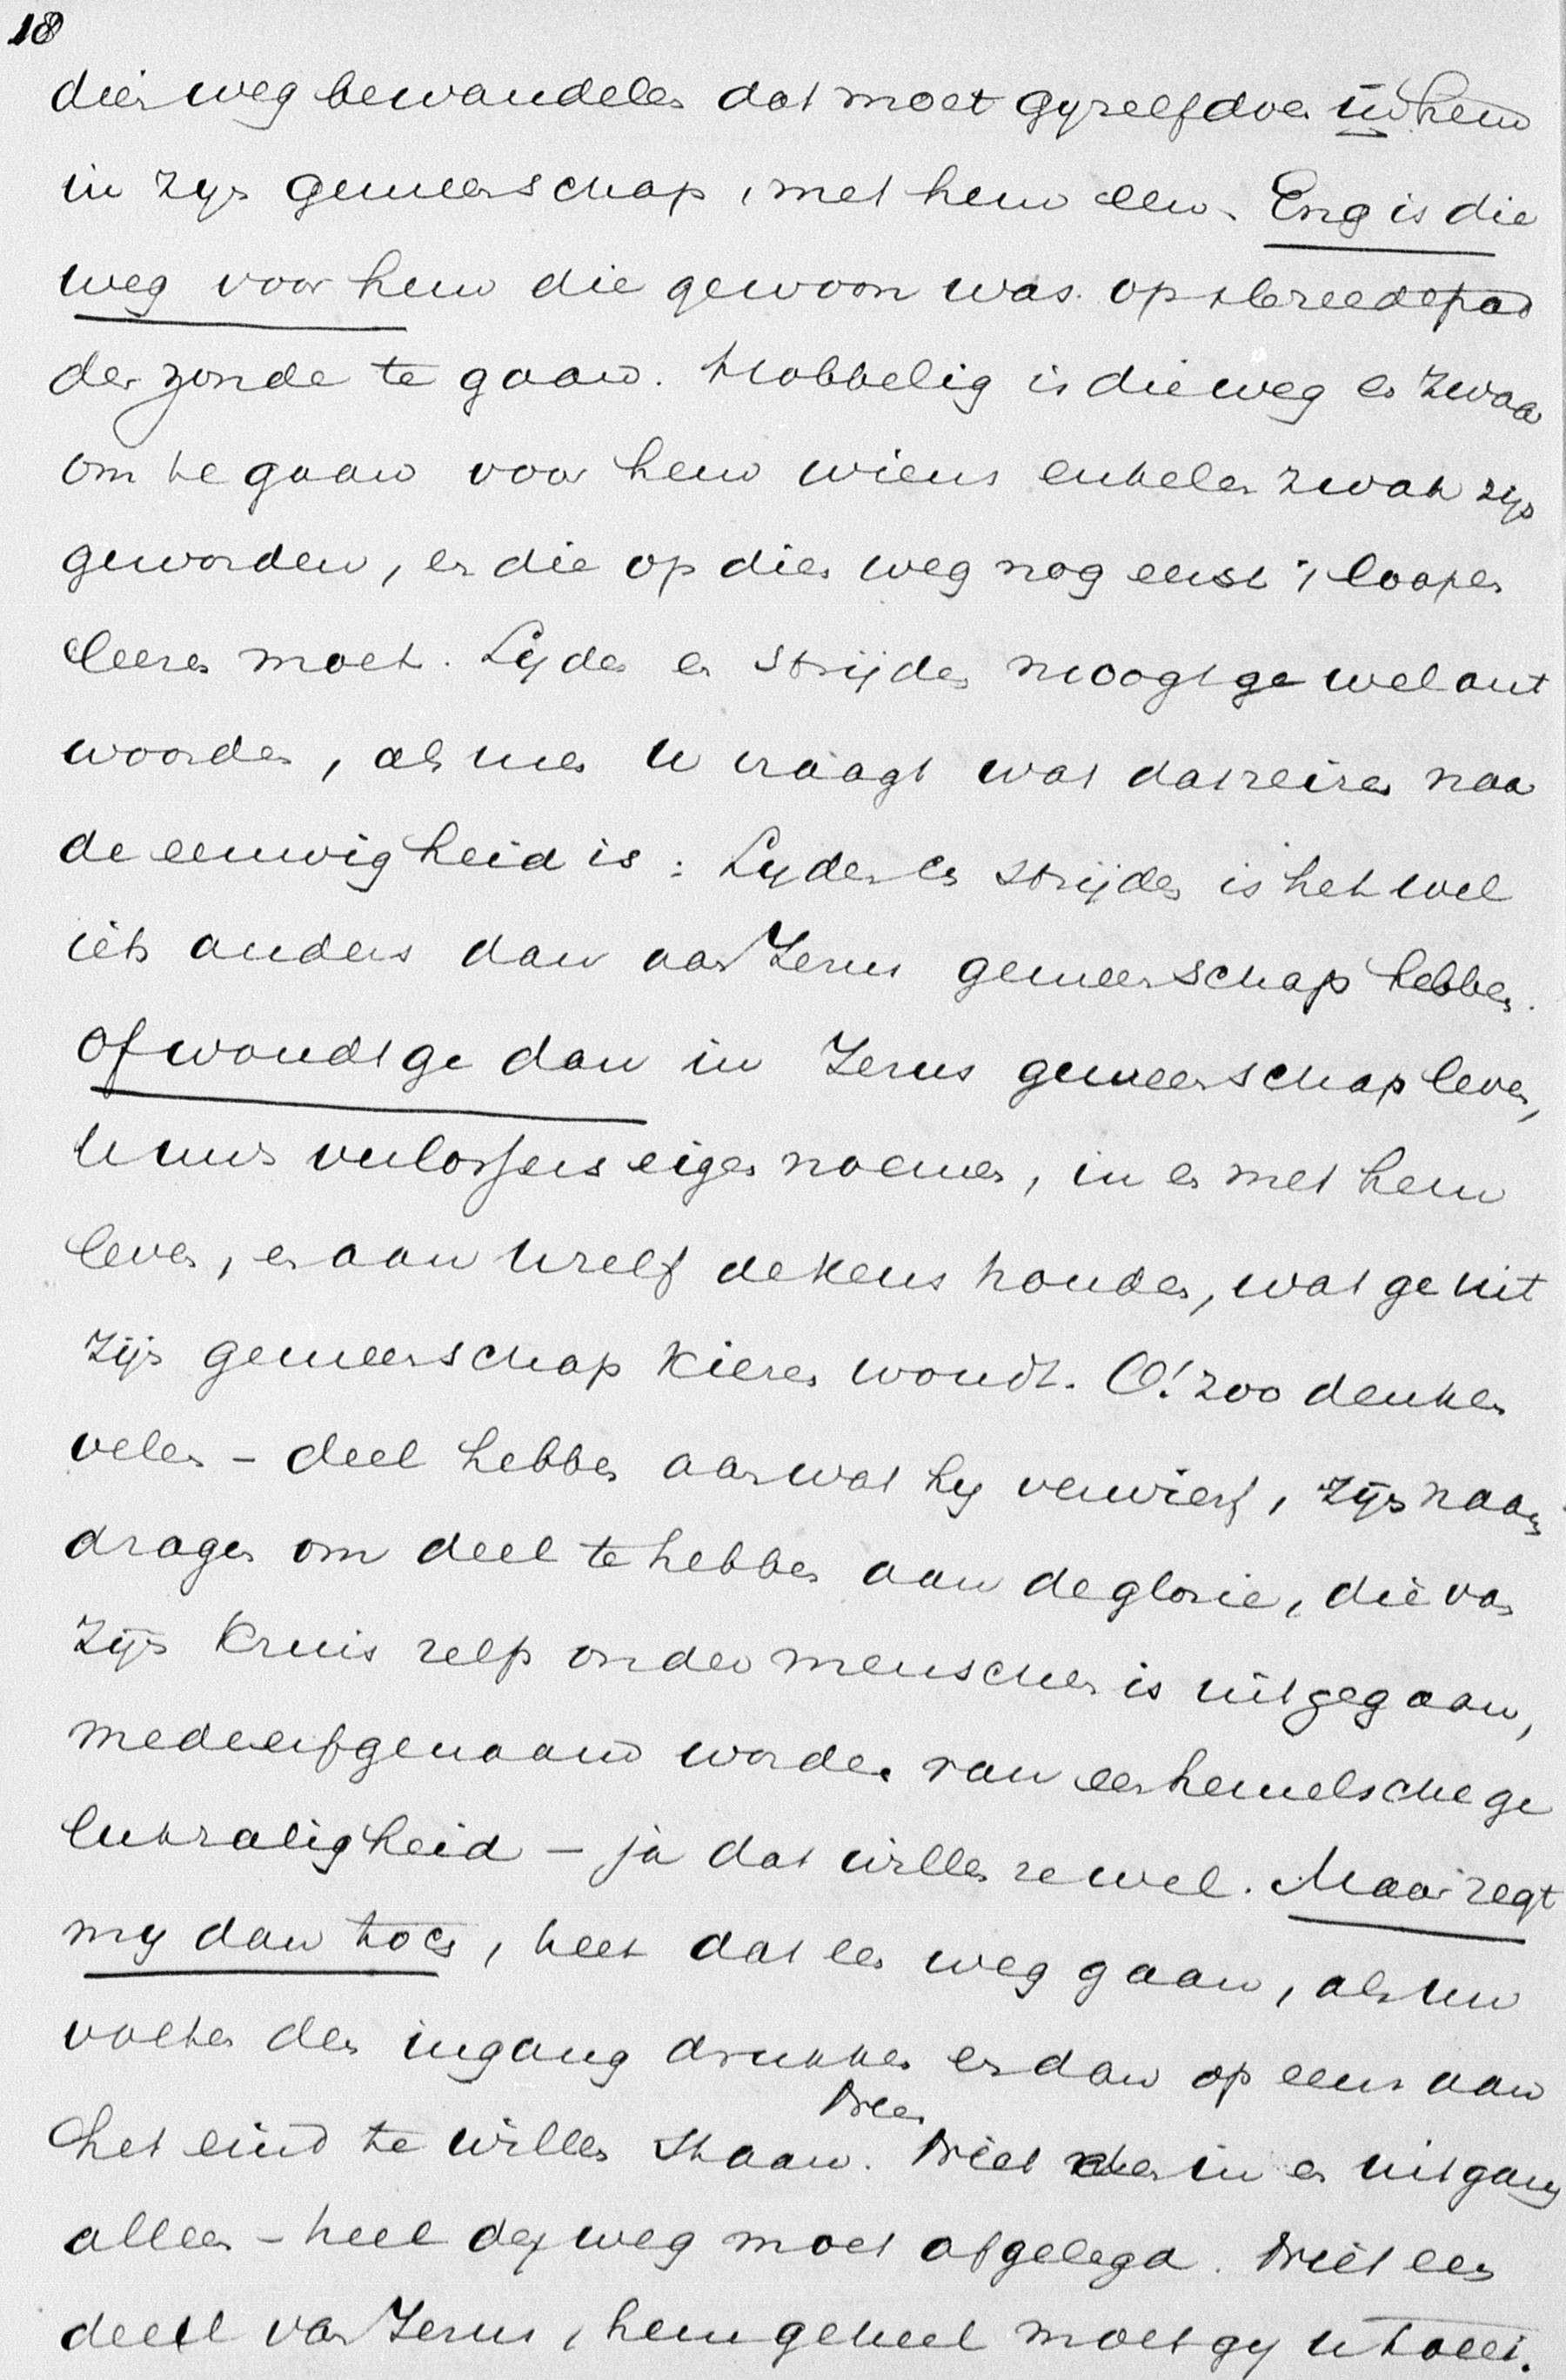 18
dien weg bewandelen dat moet gyzelf doen in hem
in zyn gemeenschap, met hem een. Eng is die
weg voor hem die gewoon was op 't breede pad
der zonde te gaan. Hobbelig is die weg en zwaar
om te gaan voor hem wiens enkelen zwak zijn
geworden, en die op dien weg nog eerst 't loopen
leeren moet. Lyden en strijden moogt ge wel ant
woorden, als men U vraagt wat dat reizen naar
de eeuwigheid is: Lyden en strijden is het wel
iets anders dan aan Jezus gemeenschap hebben.
Of woudt ge dan in Jezus gemeenschap leven,
U uws verlossers eigen noemen, in en met hem
leven, en aan Uzelf de keus houden, wat ge uit
zijn gemeenschap kiezen woudt. O! zoo denken
velen - deel hebben aan wat hy verwierf, zijn naam
dragen om deel te hebben aan de glorie, die van
zijn kruis zelfs onder menschen is uitgegaan,
medeerfgenaam worden van een hemelsche ge
lukzaligheid - ja dat willen ze wel. Maar zegt
my dan toch, heet dat een weg gaan, als uw
voeten den ingang drukken en dan op eens aan
het eind te willen staan. Neen Niet den in en uitgang
alleen - heel den weg moet afgelegd. Niet een
deel van Jezus, hem geheel moet gy U toeei.